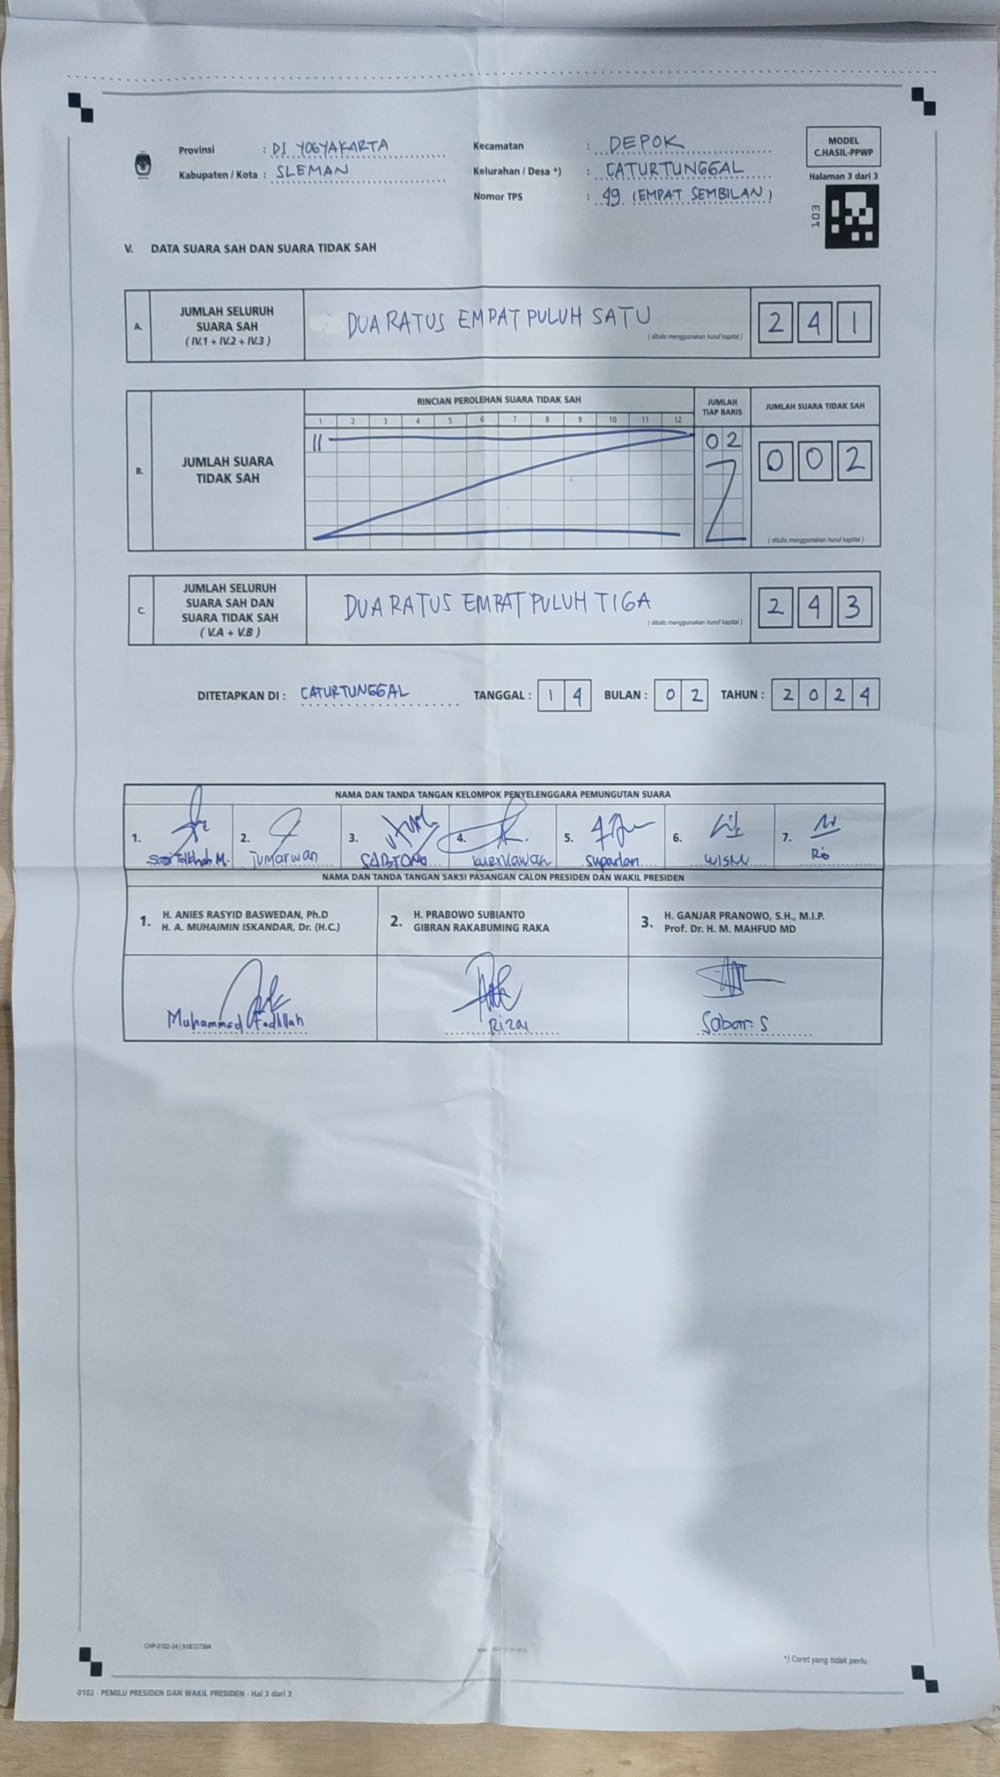 Provinsi : DI YOGYAKARTA
Kabupaten / Kota : SLEMAN
Kecamatan : DEPOK
Kelurahan / Desa *) : CATURTUNGGAL
Nomor TPS : 49 (EMPAT SEMBILAN)
MODEL
C.HASIL-PPWP
Halaman 3 dari 3
V. DATA SUARA SAH DAN SUARA TIDAK SAH
A. JUMLAH SELURUH
SUARA SAH
( IV.1 + IV.2 + IV.3 )
DUA RATUS EMPAT PULUH SATU
( ditulis menggunakan huruf kapital )
2 4 1
B. JUMLAH SUARA
TIDAK SAH
RINCIAN PEROLEHAN SUARA TIDAK SAH
JUMLAH
TIAP BARIS
JUMLAH SUARA TIDAK SAH
1 2 3 4 5 6 7 8 9 10 11 12
02
0 0 2
( ditulis menggunakan huruf kapital )
C. JUMLAH SELURUH
SUARA SAH DAN
SUARA TIDAK SAH
( V.A + V.B )
DUA RATUS EMPAT PULUH TIGA
( ditulis menggunakan huruf kapital )
2 4 3
DITETAPKAN DI : CATURTUNGGAL TANGGAL : 1 4 BULAN : 0 2 TAHUN : 2 0 2 4
NAMA DAN TANDA TANGAN KELOMPOK PENYELENGGARA PEMUNGUTAN SUARA
1. 2. 3. 4. 5. 6. 7.
Jumarwan SARTONO Kurniawan Supardan WISNU Rio
NAMA DAN TANDA TANGAN SAKSI PASANGAN CALON PRESIDEN DAN WAKIL PRESIDEN
1. H. ANIES RASYID BASWEDAN, Ph.D
H. A. MUHAIMIN ISKANDAR, Dr. (H.C.)
2. H. PRABOWO SUBIANTO
GIBRAN RAKABUMING RAKA
3. H. GANJAR PRANOWO, S.H., M.I.P.
Prof. Dr. H. M. MAHFUD MD
Muhammad Fadillah
Rizal
Sabar. S
CHP-0102-04 | 918727364
*) Coret yang tidak perlu
0102 - PEMILU PRESIDEN DAN WAKIL PRESIDEN - Hal 3 dari 3